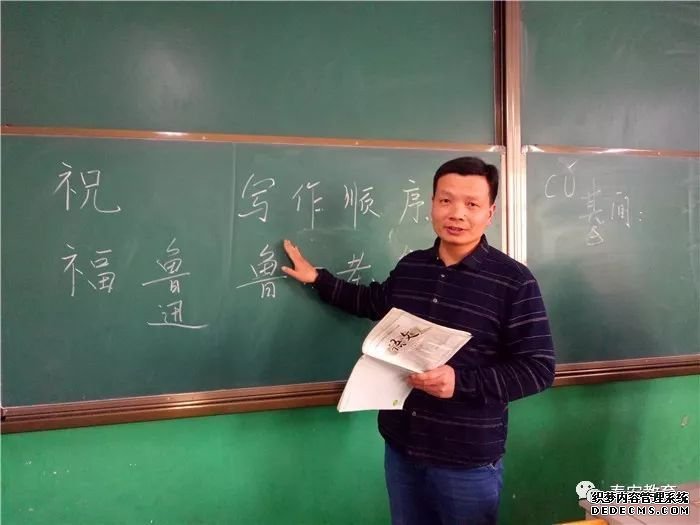 祝 写作顺序
福 鲁迅 鲁
间:
语文
泰安教育
织梦内容管理系统
DEDECMS.COM